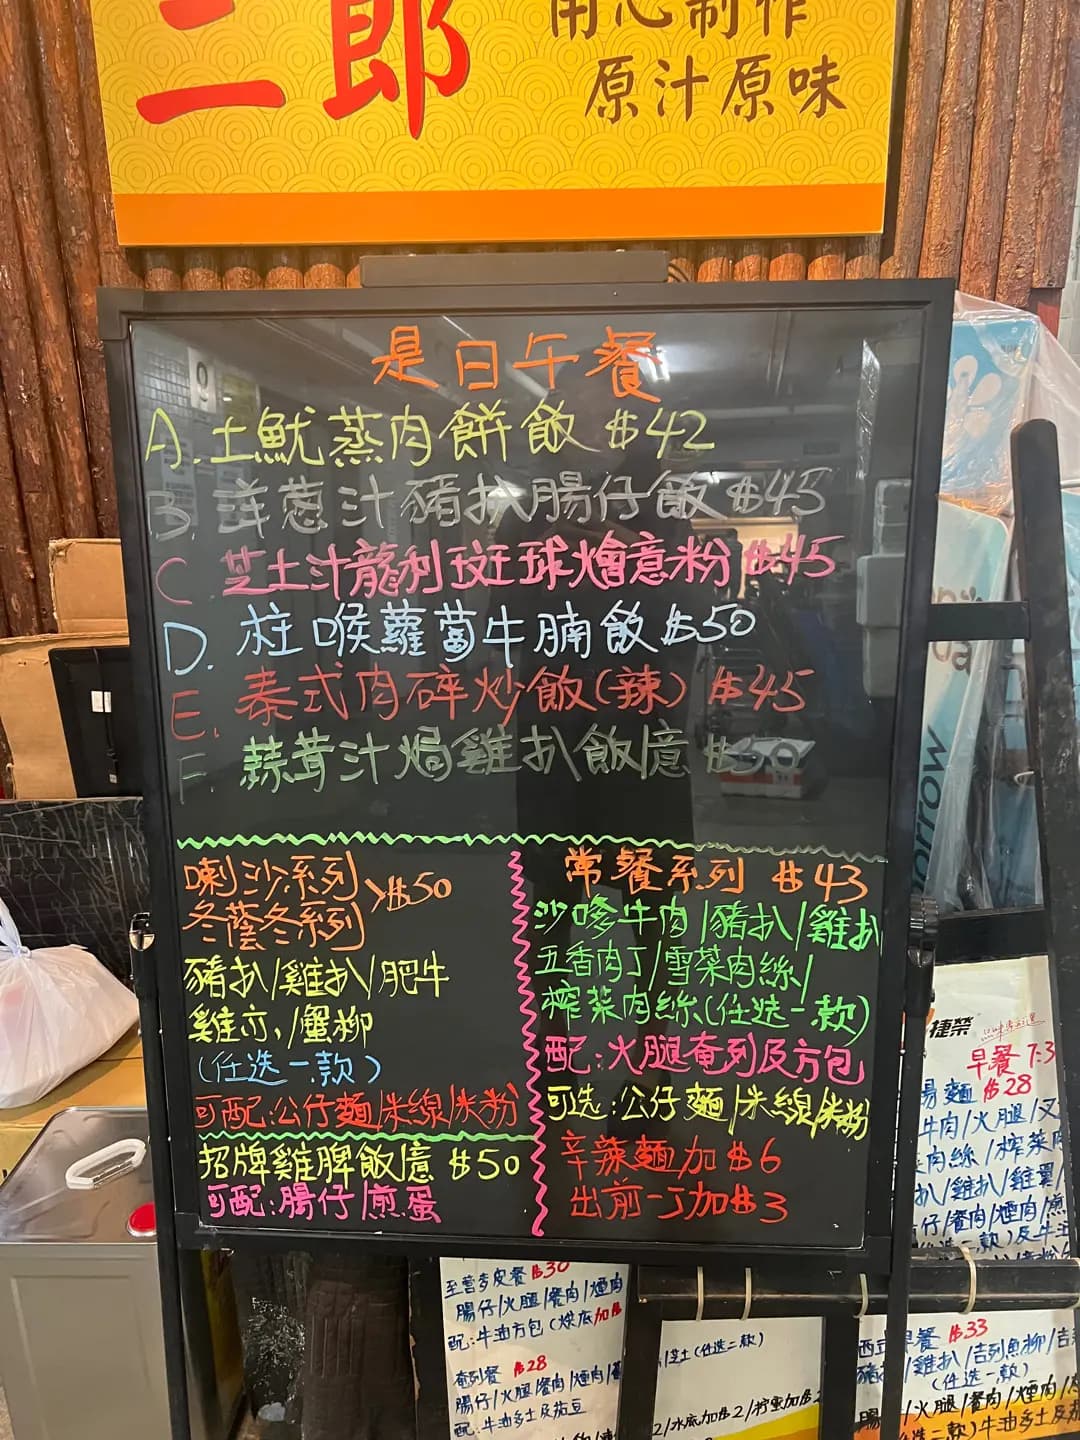 三郎
用心製作
原汁原味
是日午餐
A. 土魷蒸肉餅飯 $42
B. 洋葱汁豬扒腸仔飯 $45
C 芝士汁龍利斑球燴意粉 $45
D. 柱喉蘿蔔牛腩飯 $50
E. 泰式肉碎炒飯(辣) $45
F. 蒜茸汁焗雞扒飯/意 $50
喇沙系列
冬蔭冬系列 >$50
豬扒/雞扒/肥牛
雞亦/蟹柳
(任选一款)
可配:公仔麵/米線/米粉
招牌雞脾飯/意 $50
可配:腸仔/煎蛋
常餐系列 $43
沙嗲牛肉/豬扒/雞扒
五香肉丁/雪菜肉絲/
榨菜肉絲(任选一款)
配:火腿奄列及方包
可选:公仔麵/米線/米粉
辛辣麵加$6
出前一丁加$3
捷榮
早餐 7:3
腸麵 $28
牛肉/火腿/叉
肉絲/榨菜肉
扒/雞扒/雞翼/
仔/餐肉/煙肉/煎
$30
腸仔/火腿/餐肉/煙肉
配:牛油方包(烘底加
奄列餐 $28
腸仔/火腿/餐肉/煙肉
配:牛油多士及
芝士(任选二款)
2/水底加$2/檸蜜加$2
西式早餐 $33
豬扒/雞扒/吉列魚柳/吉
(任选一款)
腸仔/火腿/餐肉/煙肉/
牛油多士及